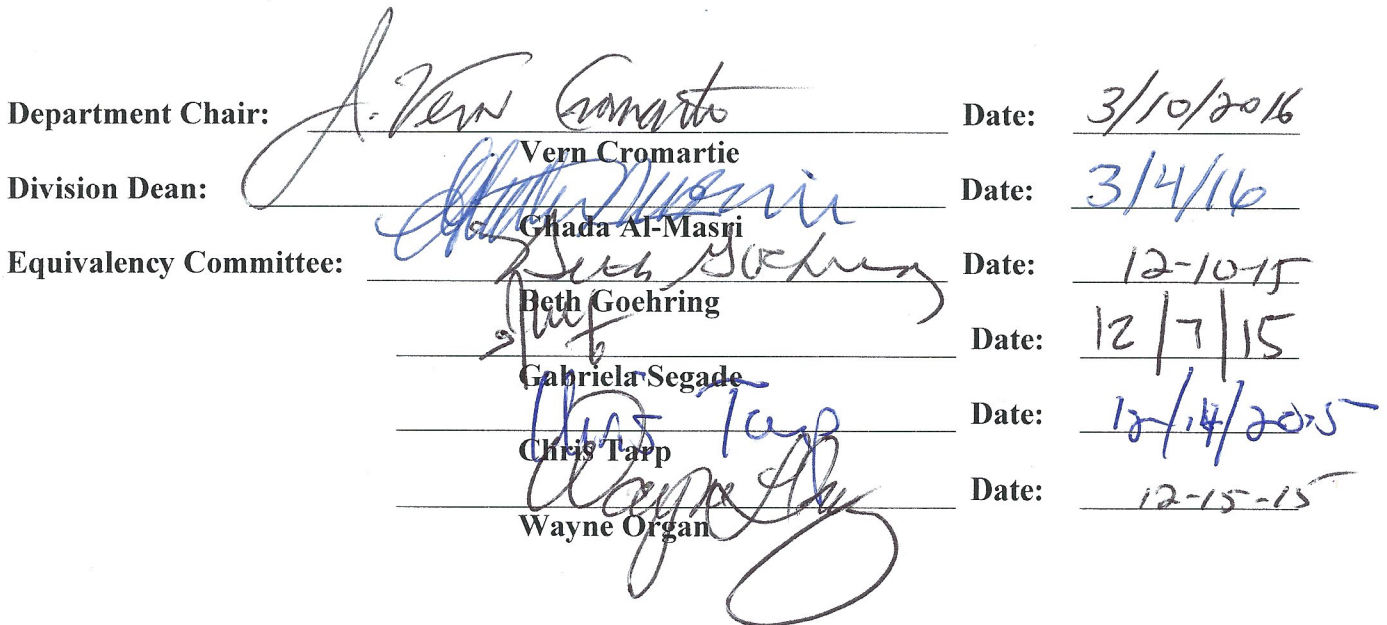 Department Chair: J. Vern Cromartie Date: 3/10/2016
Vern Cromartie
Division Dean: Date: 3/4/16
Ghada Al-Masri
Equivalency Committee: Beth Goehring Date: 12-10-15
Beth Goehring
Date: 12/7/15
Gabriela Segade
Chris Tarp Date: 12/14/2015
Chris Tarp
Wayne Date: 12-15-15
Wayne Organ